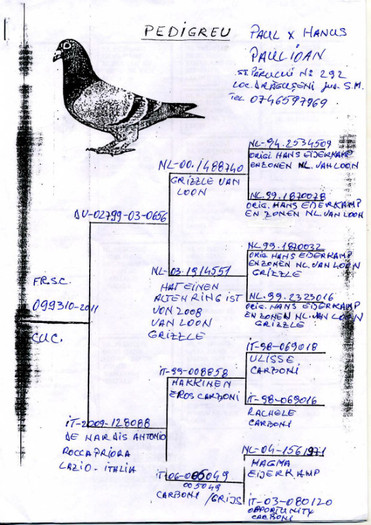 PEDIGREU
PAUL x HANUS
PAUL IOAN
ST. PĂRULUI Nº 292
LOC. DRĂGUȘENI JUD. S.M.
TEL 0746597969
NL-94.2534509
ORIG. HANS EIJERKAMP
EN ZONEN NL. VAN LOON
NL-00.1488740
GRIZZLE VAN
LOON
NL.99.1870028
ORIG. HANS EIJERKAMP
EN ZONEN NL. VAN LOON
DV-02799-03-0656
NL99.1870032
ORIG. HANS EIJERKAMP
EN ZONEN NL. VAN LOON
GRIZZLE
NL-03.1914551
HAT EINEN
ALTEN RING IST
VON 2008
VAN LOON
GRIZZLE
NL.99.2323016
ORIG. HANS EIJERKAMP
EN ZONEN NL. VAN LOON
GRIZZLE
FR.SC.
099310-2011
CUC.
IT-98-069018
ULISSE
CARZONI
IT-99-008858
HAKKINEN
EROS CARZONI
IT-98-069016
RACHELE
CARZONI
IT-2009-128088
DE NARDIS ANTONIO
ROCCA PRIORA
LAZIO - ITALIA
NL-04-1561971
MAGMA
EIJERKAMP
IT-06-005049
005049
CARZONI /GRIJS
IT-03-080120
OPPORTUNITY
CARZONI